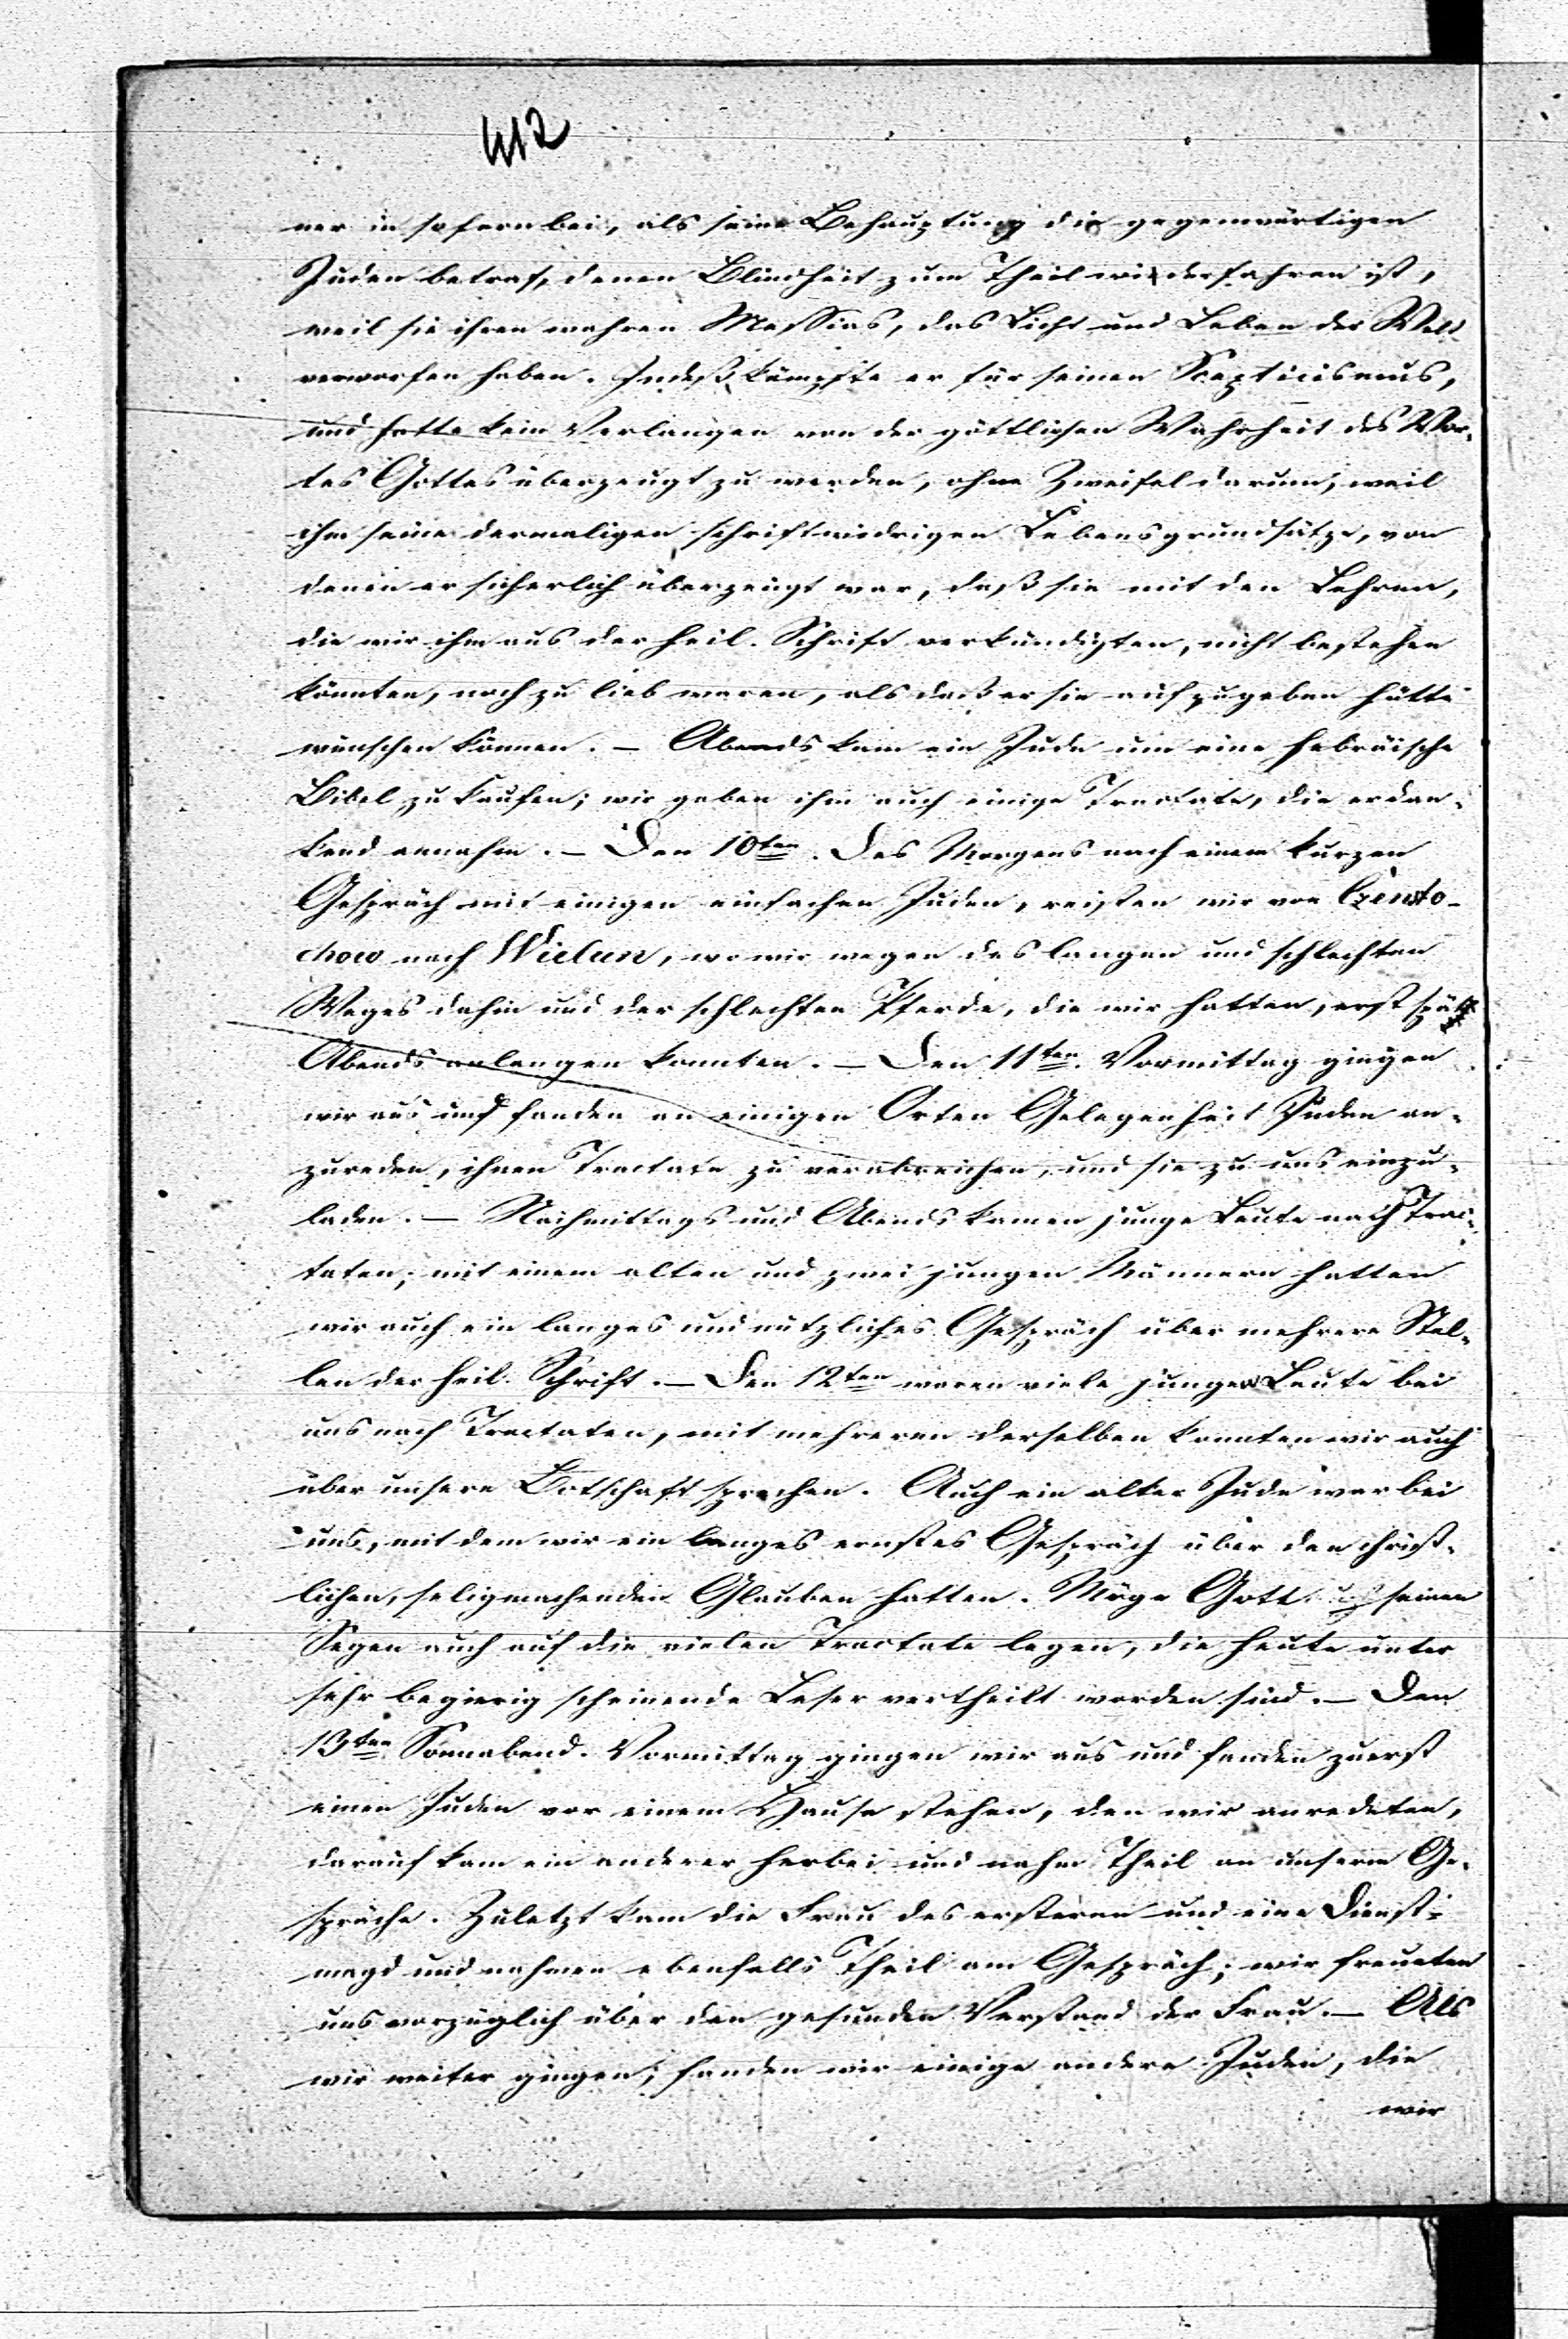 412
ner in sofern bei, als seine Behauptung die gegenwärtigen
Juden betraf, denen Blindheit zum Theil wiederfahren ist,
weil sie ihren wahren Messias, das Licht und Leben der Welt
verworfen haben. Indeß kämpfte er für seinen Scepticismus,
und hatte kein Verlangen von der göttlichen Wahrheit des Wor-
tes Gottes überzeugt zu werden, ohne Zweifel darum, weil
ihm seine dermaligen schriftwidrigen Lebensgrundsätze, von
denen er sicherlich überzeugt war, daß sie mit den Lehren,
die wir ihm aus der heil. Schrift verkündigten, nicht bestehen
könnten, noch zu lieb waren, als daß er sie aufzugeben hätte
wünschen können. — Abends kam ein Jude um eine hebräische
Bibel zu kaufen; wir gaben ihm auch einige Tractate, die er dan-
kend annahm. — Den 10ten. Des Morgens nach einem kurzen
Gespräch mit einigen einfachen Juden, reisten wir von Czensto-
chow nach Wielun, wo wir wegen des langen und schlechten
Weges dahin und der schlechten Pferde, die wir hatten, erst spät
Abends anlangen konnten. — Den 11ten. Vormittag gingen
wir aus und fanden an einigen Orten Gelegenheit Juden an-
zureden, ihnen Tractate zu verabreichen, und sie zu uns einzu-
laden. — Nachmittags und Abends kamen junge Leute nach Trac-
taten; mit einem alten und zwei jungen Männern hatten
wir auch ein langes und nützliches Gespräch über mehrere Stel-
len der heil. Schrift. — Den 12ten waren viele junge Leute bei
uns nach Tractaten, mit mehreren derselben konnten wir auch
über unsere Botschaft sprechen. Auch ein alter Jude war bei
uns, mit dem wir ein langes ernstes Gespräch über den christ-
lichen, seligmachenden Glauben hatten. Möge Gott seinen
Segen auch auf die vielen Tractate legen, die heute unter
sehr begierig scheinende Leser vertheilt worden sind. — Den
13ten Sonnabend. Vormittag gingen wir aus und fanden zuerst
einen Juden vor einem Hause stehen, den wir anredeten,
darauf kam ein anderer herbei und nahm Theil an unserm Ge-
spräche. Zuletzt kam die Frau des ersteren und eine Dienst-
magd und nahmen ebenfalls Theil am Gespräch; wir freueten
uns vorzüglich über den gesunden Verstand der Frau. — Als
wir weiter gingen, fanden wir einige andere Juden, die
wir